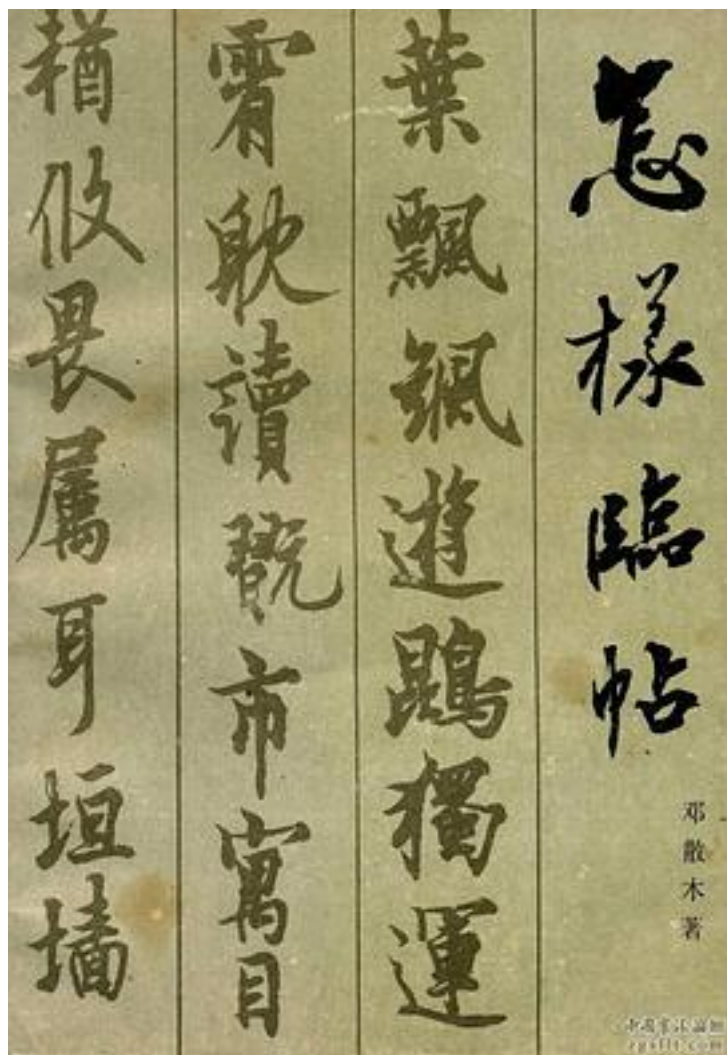 怎樣臨帖
邓散木著
葉飄颻遊鵾獨運
霄耽讀翫市寓目
輶攸畏属耳垣墻